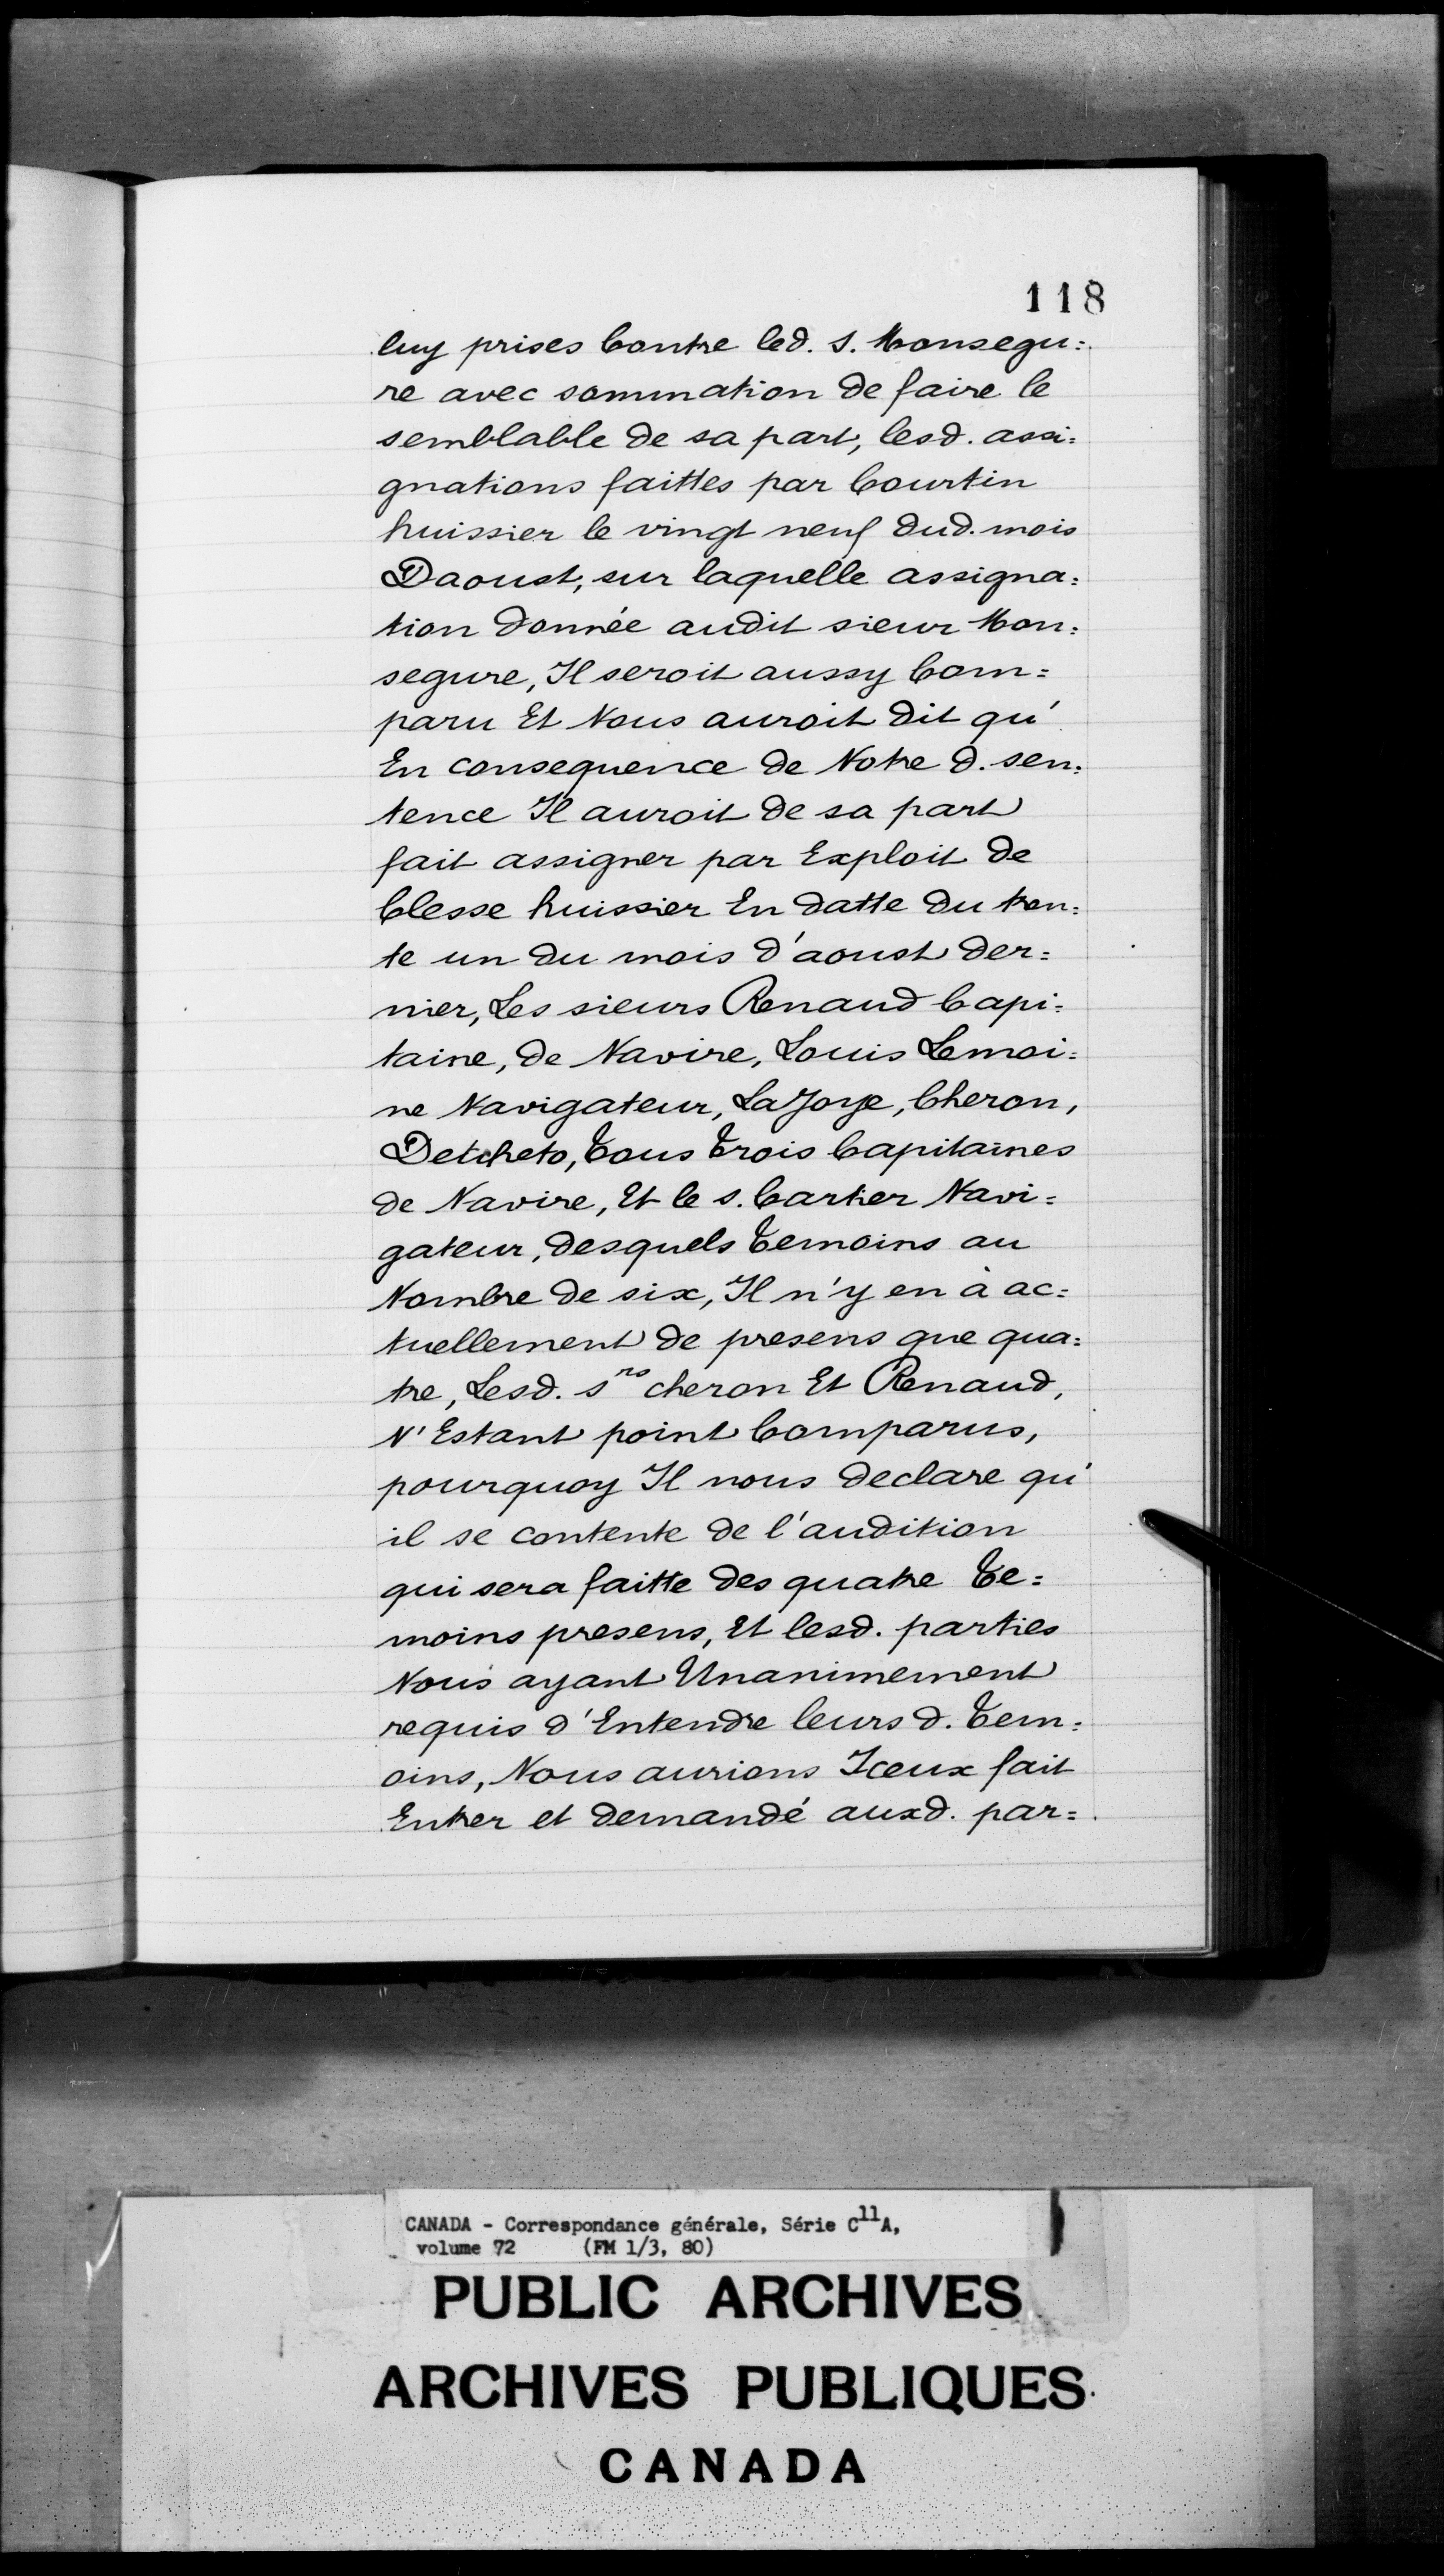 118
luy prises Contre led. s. Monsegu=
re avec sommation de faire le
semblable de sa part, lesd. assi=
gnations faittes par Courtin
huissier le vingt neuf dud. mois
Daoust, sur laquelle assigna=
tion donnée audit sieur Mon=
segure, Il seroit aussy Com=
paru Et Nous auroit dit qu'
En consequence de Notre d. sen=
tence Il auroit de sa part
fait assigner par Exploit de
Clesse huissier En datte du tren=
te un du mois d'aoust der=
nier, Les sieurs Renaud Capi=
taine, de Navire, Louis Lemoi=
ne Navigateur, LaJoye, Cheron,
Detcheto, Tous Trois Capitaines
de Navire, Et le s. Cartier Navi=
gateur, desquels Temoins au
Nombre de six, Il n'y en à ac=
tuellement de presens que qua=
tre, Lesd. srs cheron Et Renaud,
N'Estant point Comparus,
pourquoy Il nous declare qu'
il se contente de l'audition
qui sera faitte des quatre Te=
moins presens, Et lesd. parties
Nous ayant Unanimement
requis d'Entendre leurs d. Tem=
oins, Nous aurions Iceux fait
Entrer et demandé auxd. par=
CANADA - Correspondance générale, Série C11A,
volume 72 (FM 1/3, 80)
PUBLIC ARCHIVES
ARCHIVES PUBLIQUES
CANADA